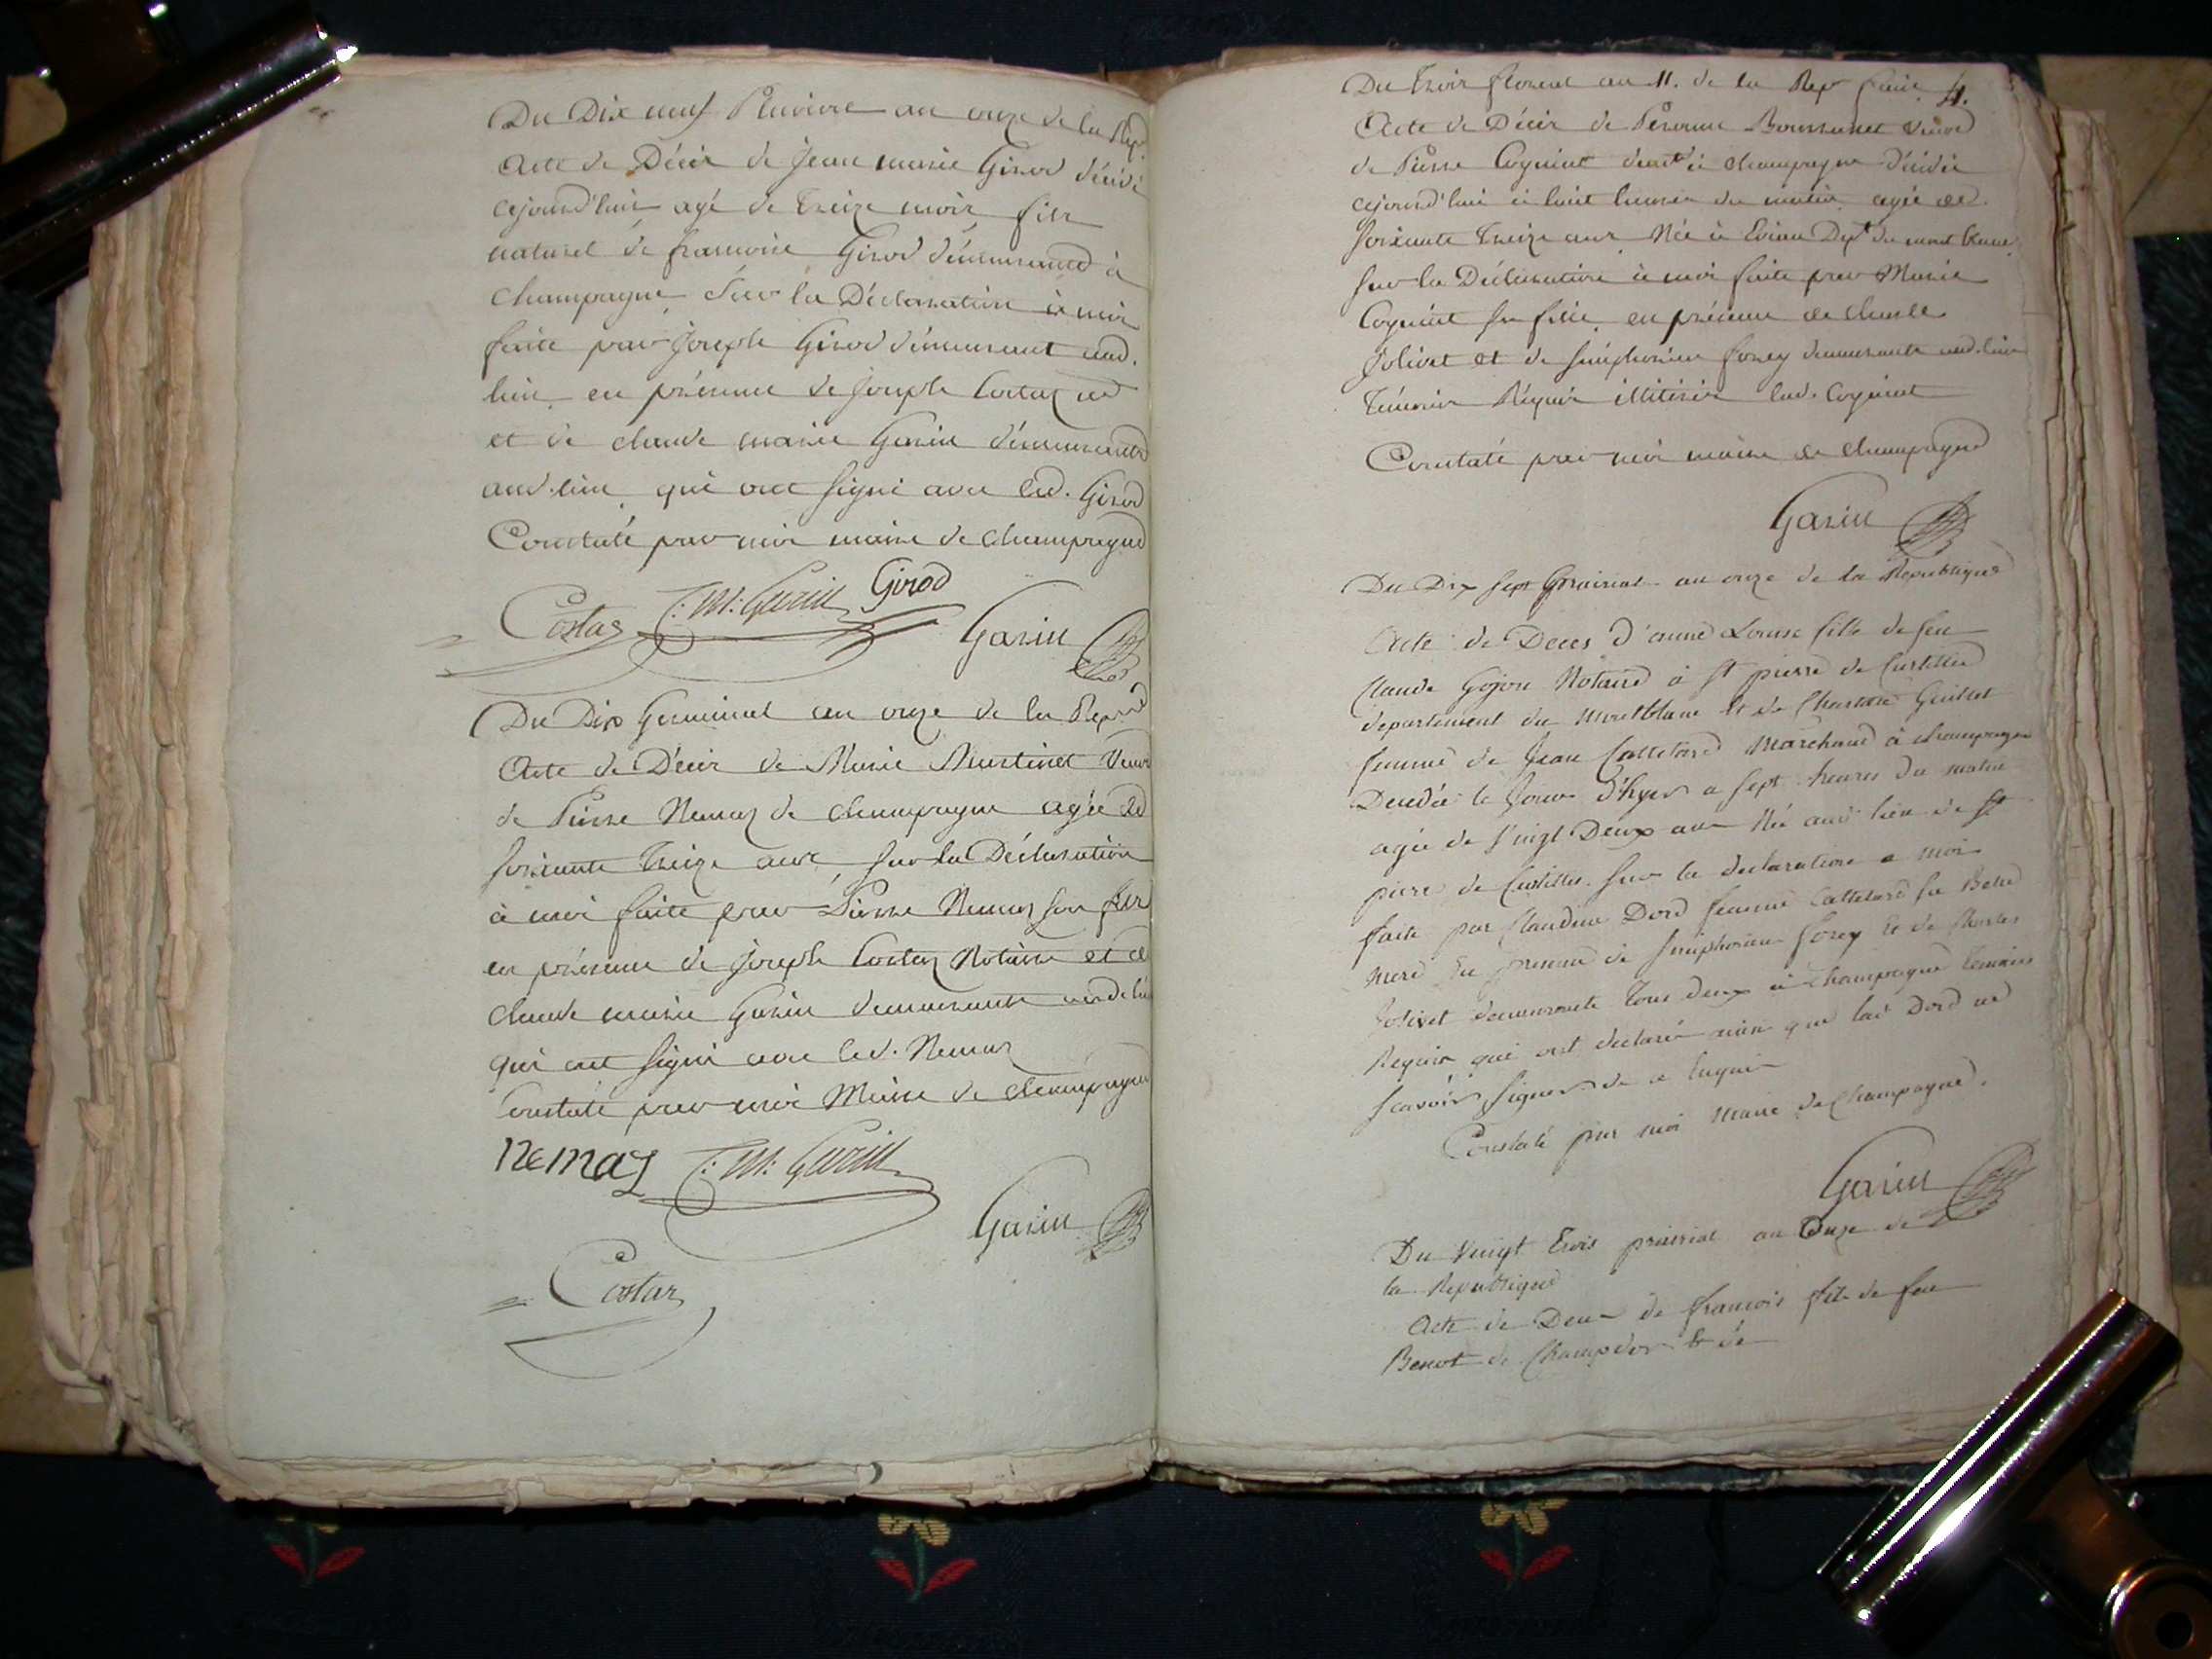 Du Dix neuf Pluviose an onze de la Rep.
Acte de Décès de Jean marie Girod décédé
cejourd'hui agé de treize mois fils
naturel de francoise Girod démeurante à
Champagne Sur la Déclaration à moi
faite par Joseph Girod démeurant aud.
lieu en présence de Joseph Costaz
et de claude marie Garin démeurants
aud. lieu qui ont signé avec led. Girod
Constaté par moi maire de champagne
Costaz C: M: Garin Girod
Garin
Du Dix Germinal an onze de la Rep
Acte de Décès de Marie Martinet Veuve
de Pierre Nemoz de champagne agée de
soixante Treize ans, sur la Déclaration
à moi faite par Pierre Nemoz son fils
en présence de Joseph Costaz Notaire et de
claude marie Garin demeurants aud. lieu
qui ont signé avec led. Nemoz
Constaté par moi Maire de champagne
Nemaz C: M: Garin
Garin
Costaz
Du trois floreal an 11. de la Rep 4.
Acte de Décès de veuve
de Pierre Coguint demt à champagne décédée
cejourd'hui à huit heures du matin agée de
soixante Treize ans Née à Evian Dept du mont blanc
sur la Déclaration à moi faite par Marie
Coguint sa fille en présence de charle
Jolivet et de simphorien forey demeurants aud. lieu
Témoins Réquis illitérés lad. Coguint
Constaté par moi maire de champagne
Garin
Du Dix sept Prairial an onze de la Republique
Acte de Deces d'anne Louise fille de feu
Claude Gojon Notaire à St pierre de Curtille
departement du Montblanc et de Guillet
femme de Jean Cattelard Marchand à champagne
Decedée le Jour d'hyer a sept heures du matin
agée de Vingt Deux ans Née aud. lieu de St
pierre de Curtille. sur la declaration a moi
faite par Claudine Dord femme Cattelard sa Belle
Mere En presence de simphorien forey et de Charles
Jolivet demeurants tous deux à champagne temoins
Requis qui ont declaré ainsi que lad. Dord ne
scavoir signer de ce Enquis
Constaté par moi Maire de Champagne.
Garin
Du Vingt trois prairial an Onze de
la Republique
Acte de Deces de francois fils de feu
Benoit de Champdor et de